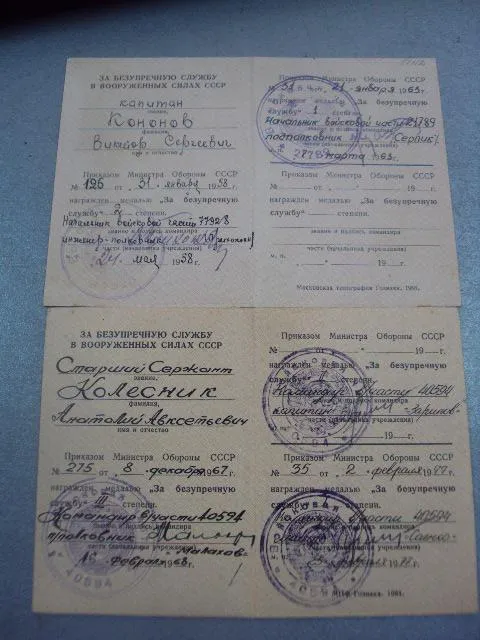 ЗА БЕЗУПРЕЧНУЮ СЛУЖБУ
В ВООРУЖЕННЫХ СИЛАХ СССР
капитан
звание,
Кононов
фамилия,
Виктор Сергеевич
имя и отчество
Приказом Министра Обороны СССР
№ 125 от 31 января 1958 г.
награжден медалью „За безупречную
службу" 2 степени.
Начальник войсковой части 77928
звание и подпись командира
инженер-полковник
части (начальника учреждения)
24 мая 1958 г.
Приказом Министра Обороны СССР
№ 31 от 21 января 1963 г.
награжден медалью „За безупречную
службу" 1 степени.
Начальник войсковой части 27789
звание и подпись командира
подполковник
части (начальника учреждения)
27789 марта 1963 г.
Приказом Министра Обороны СССР
№ — от — " — 19 — г.
награжден медалью „За безупречную
службу" — степени.
звание и подпись командира
части (начальника учреждения)
М. П. " — 19 — г.
Московская типография Гознака. 1958.
ЗА БЕЗУПРЕЧНУЮ СЛУЖБУ
В ВООРУЖЕННЫХ СИЛАХ СССР
Старший Сержант
звание,
Колесник
фамилия,
Анатолий Авксетьевич
имя и отчество
Приказом Министра Обороны СССР
№ 275 от 8 декабря 1967 г.
награжден медалью „За безупречную
службу" III степени.
Командир в/части 40594
звание и подпись командира
п/полковник Малахов
части (начальника учреждения)
16 февраля 1968 г.
40594
Приказом Министра Обороны СССР
№ — от — " — 19 — г.
награжден медалью „За безупречную
службу" II степени.
Командир в/части 40594
звание и подпись командира
капитан
части (начальника учреждения)
19 — г.
Приказом Министра Обороны СССР
№ 35 от 2 февраля 1977 г.
награжден медалью „За безупречную
службу" степени.
Командир в/части 40594
звание и подпись командира
части (начальника учреждения)
февраля 1977 г.
40594
МПФ Гознака. 1961.